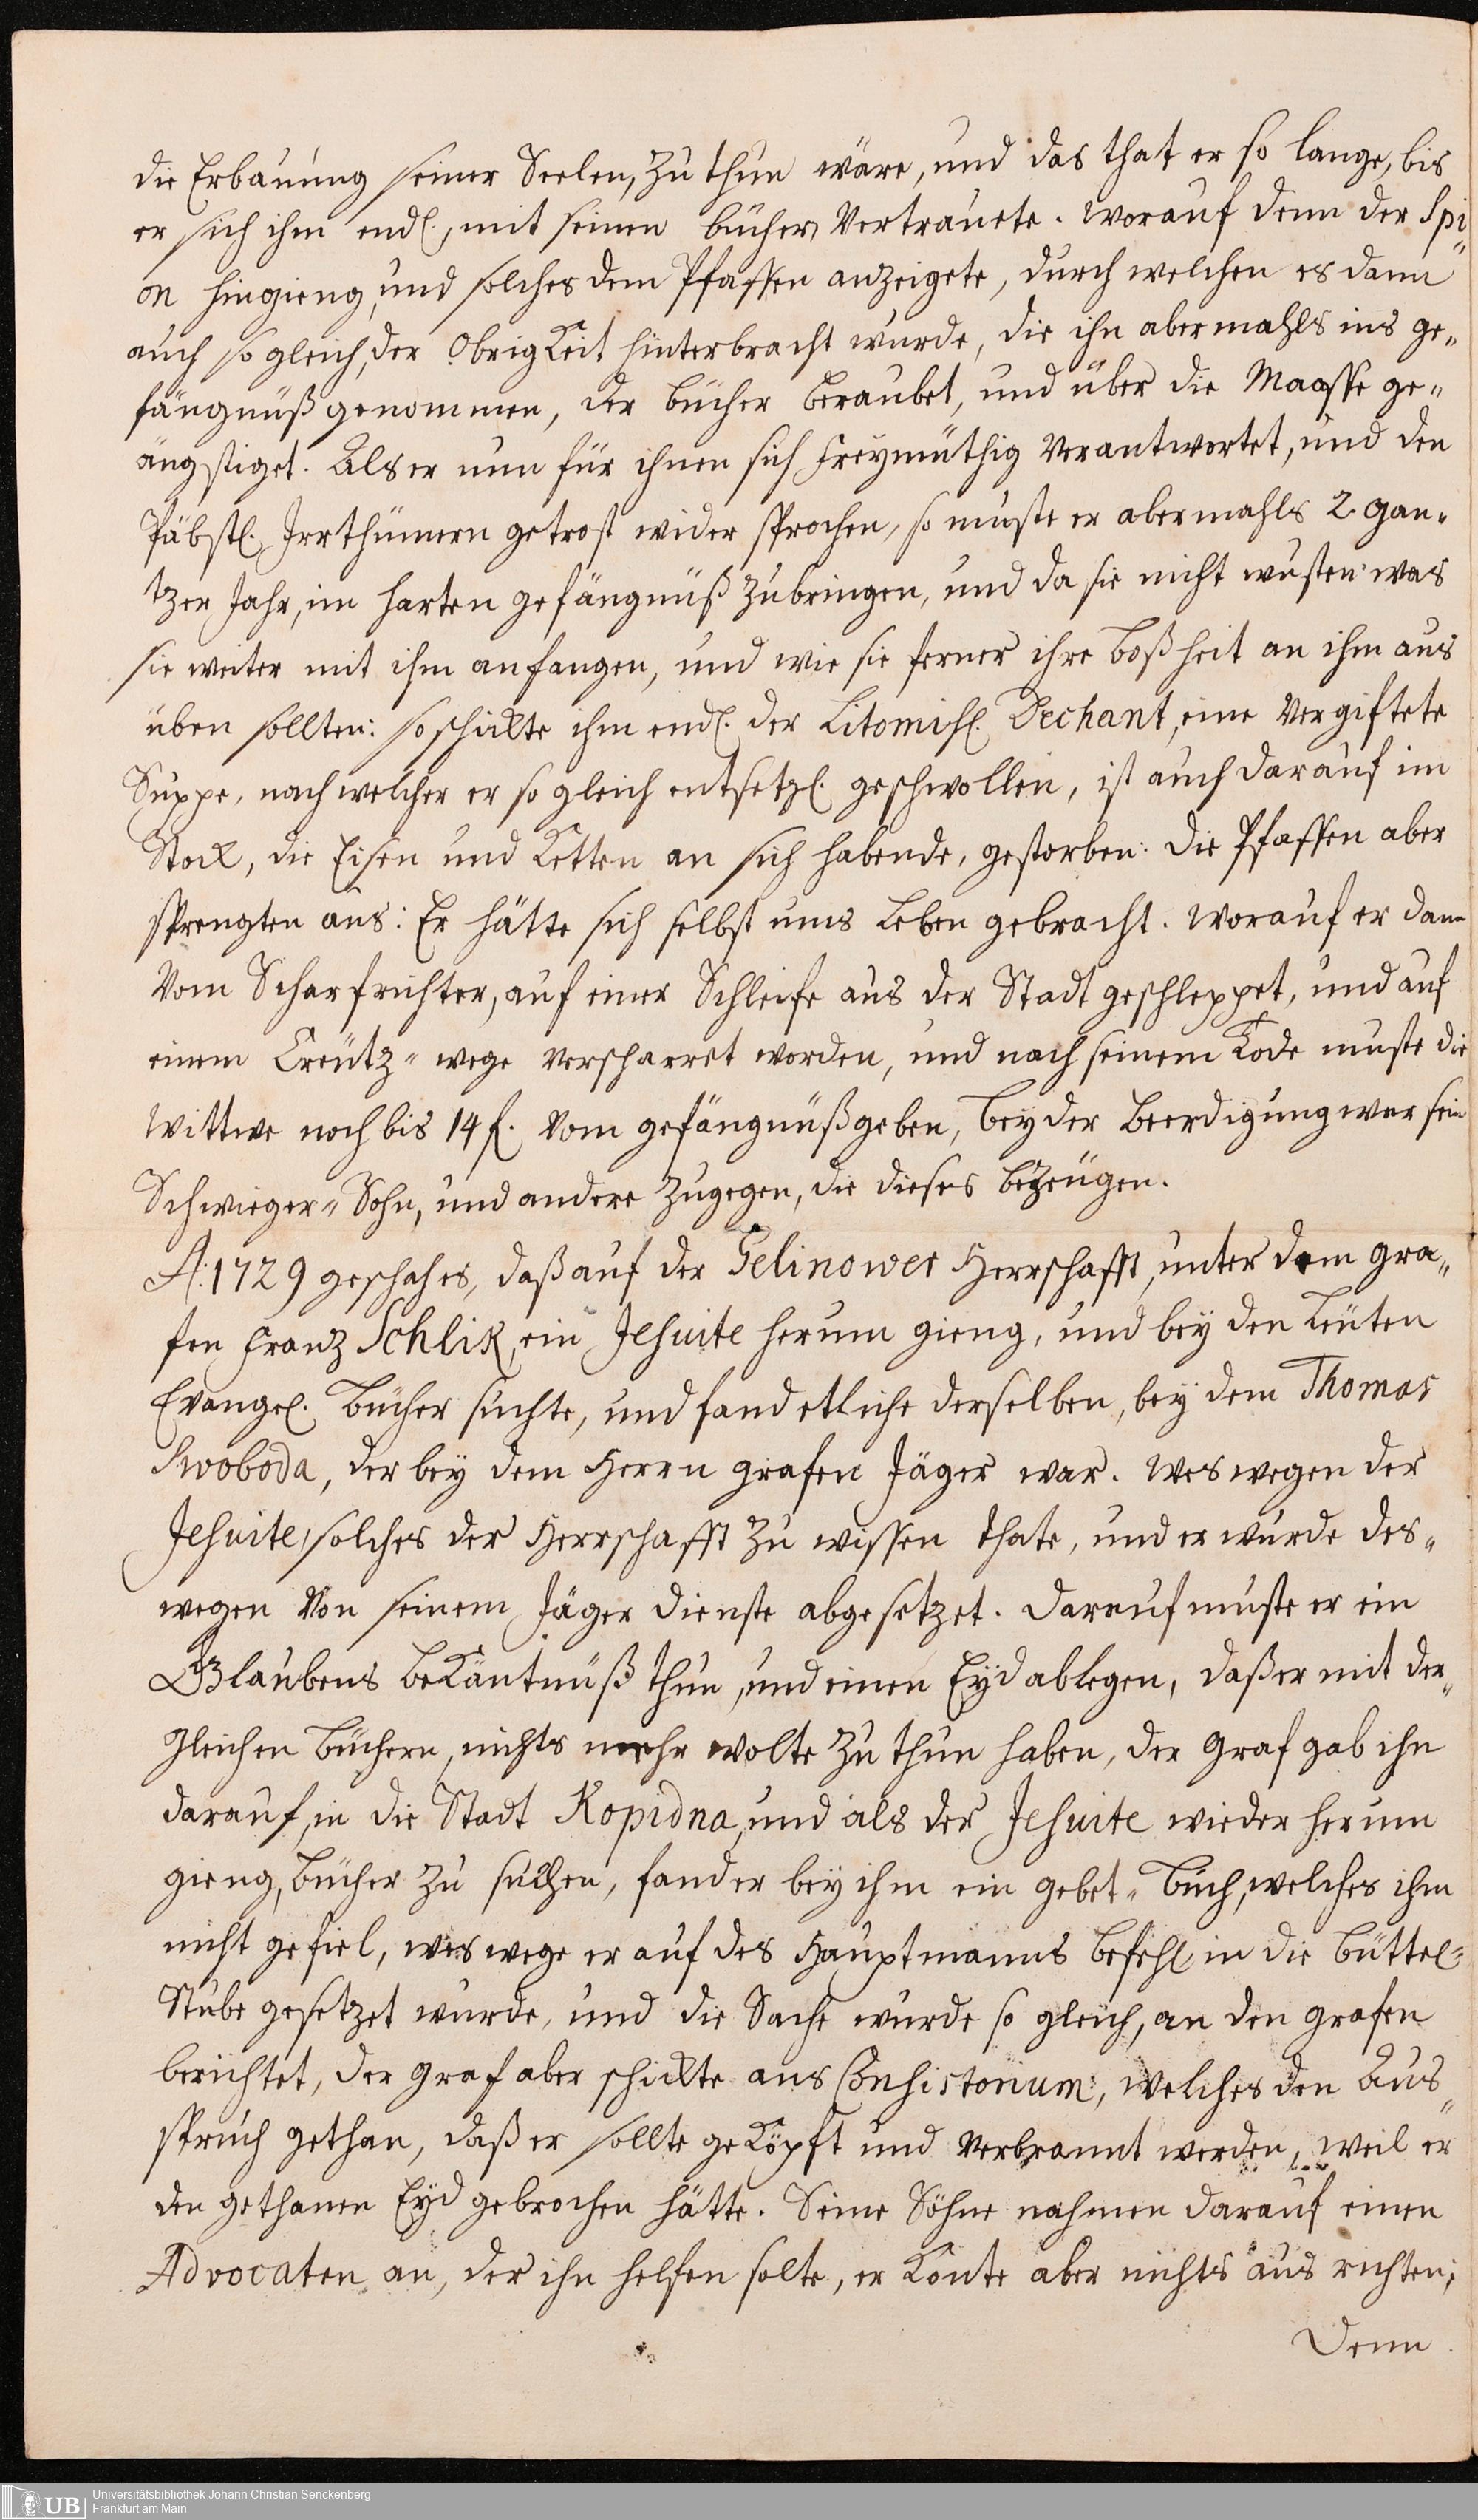 die Erbauung seiner Seelen, zu thun wäre, und das that er so lange, bis
er sich ihm endl., mit seinen bücher Vertrauete. Worauf denn der Spi„
on hingieng, und solches dem Pfaffen anzeigete, durch welchen es dann
auch so gleich, der Obrigkeit hinterbracht wurde, die ihn abermahls ins ge„
fängnüß genommen, der bücher beraubet, und über die Maasse ge„
ängstiget. Als er nun für ihnen sich freymüthig Verantwortet, und den
Päbstl. Irrthümern getrost wider sprochen, so muste er abermahls 2 gan„
tzer Jahr, im harten gefängnüß zubringen, und da sie nicht wusten was
sie weiter mit ihm anfangen, und wie sie ferner ihre boßheit an ihm aus
üben sollten: so schikte ihm endl. der Litomisl. Dechant, eine Vergiftete
Suppe, nach welcher er so gleich entsetzl. geschwollen, ist auch darauf im
Stock, die Eisen und Ketten an sich habende, gestorben. Die Pfaffen aber
sprengten aus: Er hätte sich selbst ums Leben gebracht. Worauf er dann
Vom Scharfrichter, auf einer Schleife aus der Stadt geschleppet, und auf
einem Creutz„ wege verscharret worden, und nach seinem Tode muste die
Wittwe noch bis 14 f. Vom gefängnüß geben, bey der Beerdigung war sein
Schwieger„ Sohn, und andere zugegen, die dieses bezeugen.
A: 1729 geschah es, daß auf der Gelinower Herrschafft, unter dem gra„
fen Franz Schlik, ein Jesuite herum gieng, und bey den Leüten
Evangel. Bücher suchte, und fand etliche derselben, bey dem Thomas
Swoboda, der bey dem Herrn grafen Jäger war. Weswegen der
Jesuite, solches der Herrschafft zu wissen thate, und er wurde des„
wegen Von seinem Jäger dienste abgesetzet. Darauf muste er ein
Glaubens bekäntnüß thun, und einen Eyd ablegen, daß er mit der„
gleichen Büchern, nichts mehr wolte zu thun haben, der graf gab ihn
darauf, in die Stadt Kopidna, und als der Jesuite wieder herum
gieng, Bücher zu suchen, fand er bey ihm ein gebet„ buch, welches ihm
nicht gefiel, weswege er auf des Hauptmanns befehl, in die Büttel„
Stube gesetzet wurde, und die Sache wurde so gleich, an den grafen
berichtet, der graf aber schikte ans Consistorium, welches den Aus„
spruch gethan, daß er sollte geköpft und Verbrannt werden, weil er
den gethanen Eyd gebrochen hätte. Seine Söhne nahmen darauf einen
Advocaten an, der ihn helfen solte, er konte aber nichts aus richten;
Denn
UB Universitätsbibliothek Johann Christian Senckenberg
Frankfurt am Main